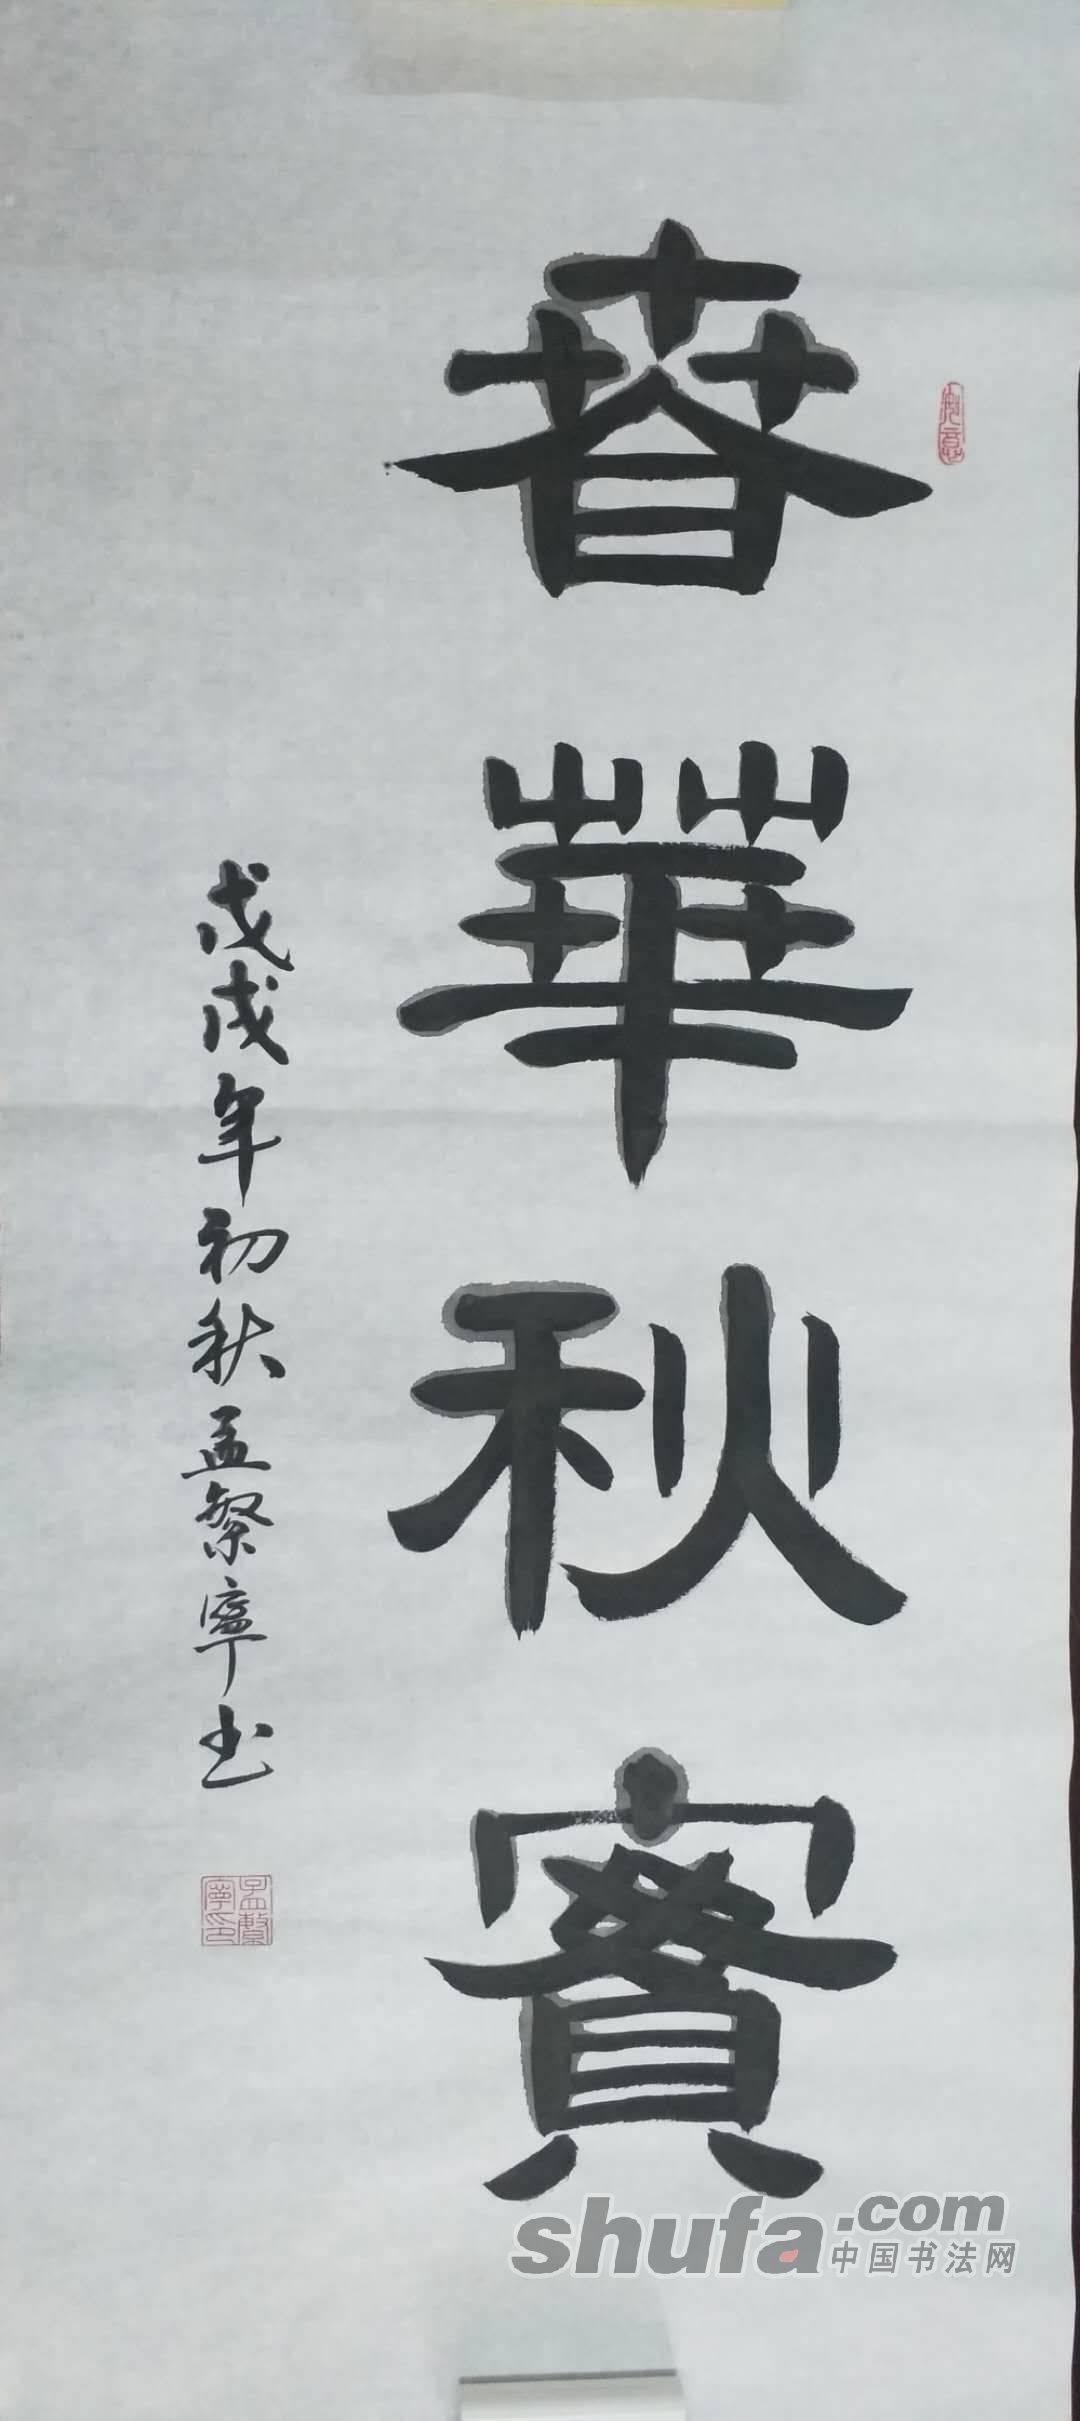 春華秋實
戊戌年初秋孟繁寧书
孟繁寧印
shufa.com
中国书法网